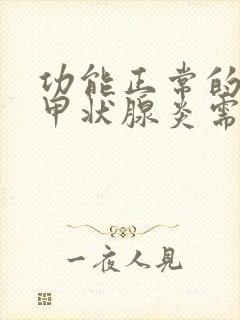 功能正常的
甲状腺炎需
一夜人見